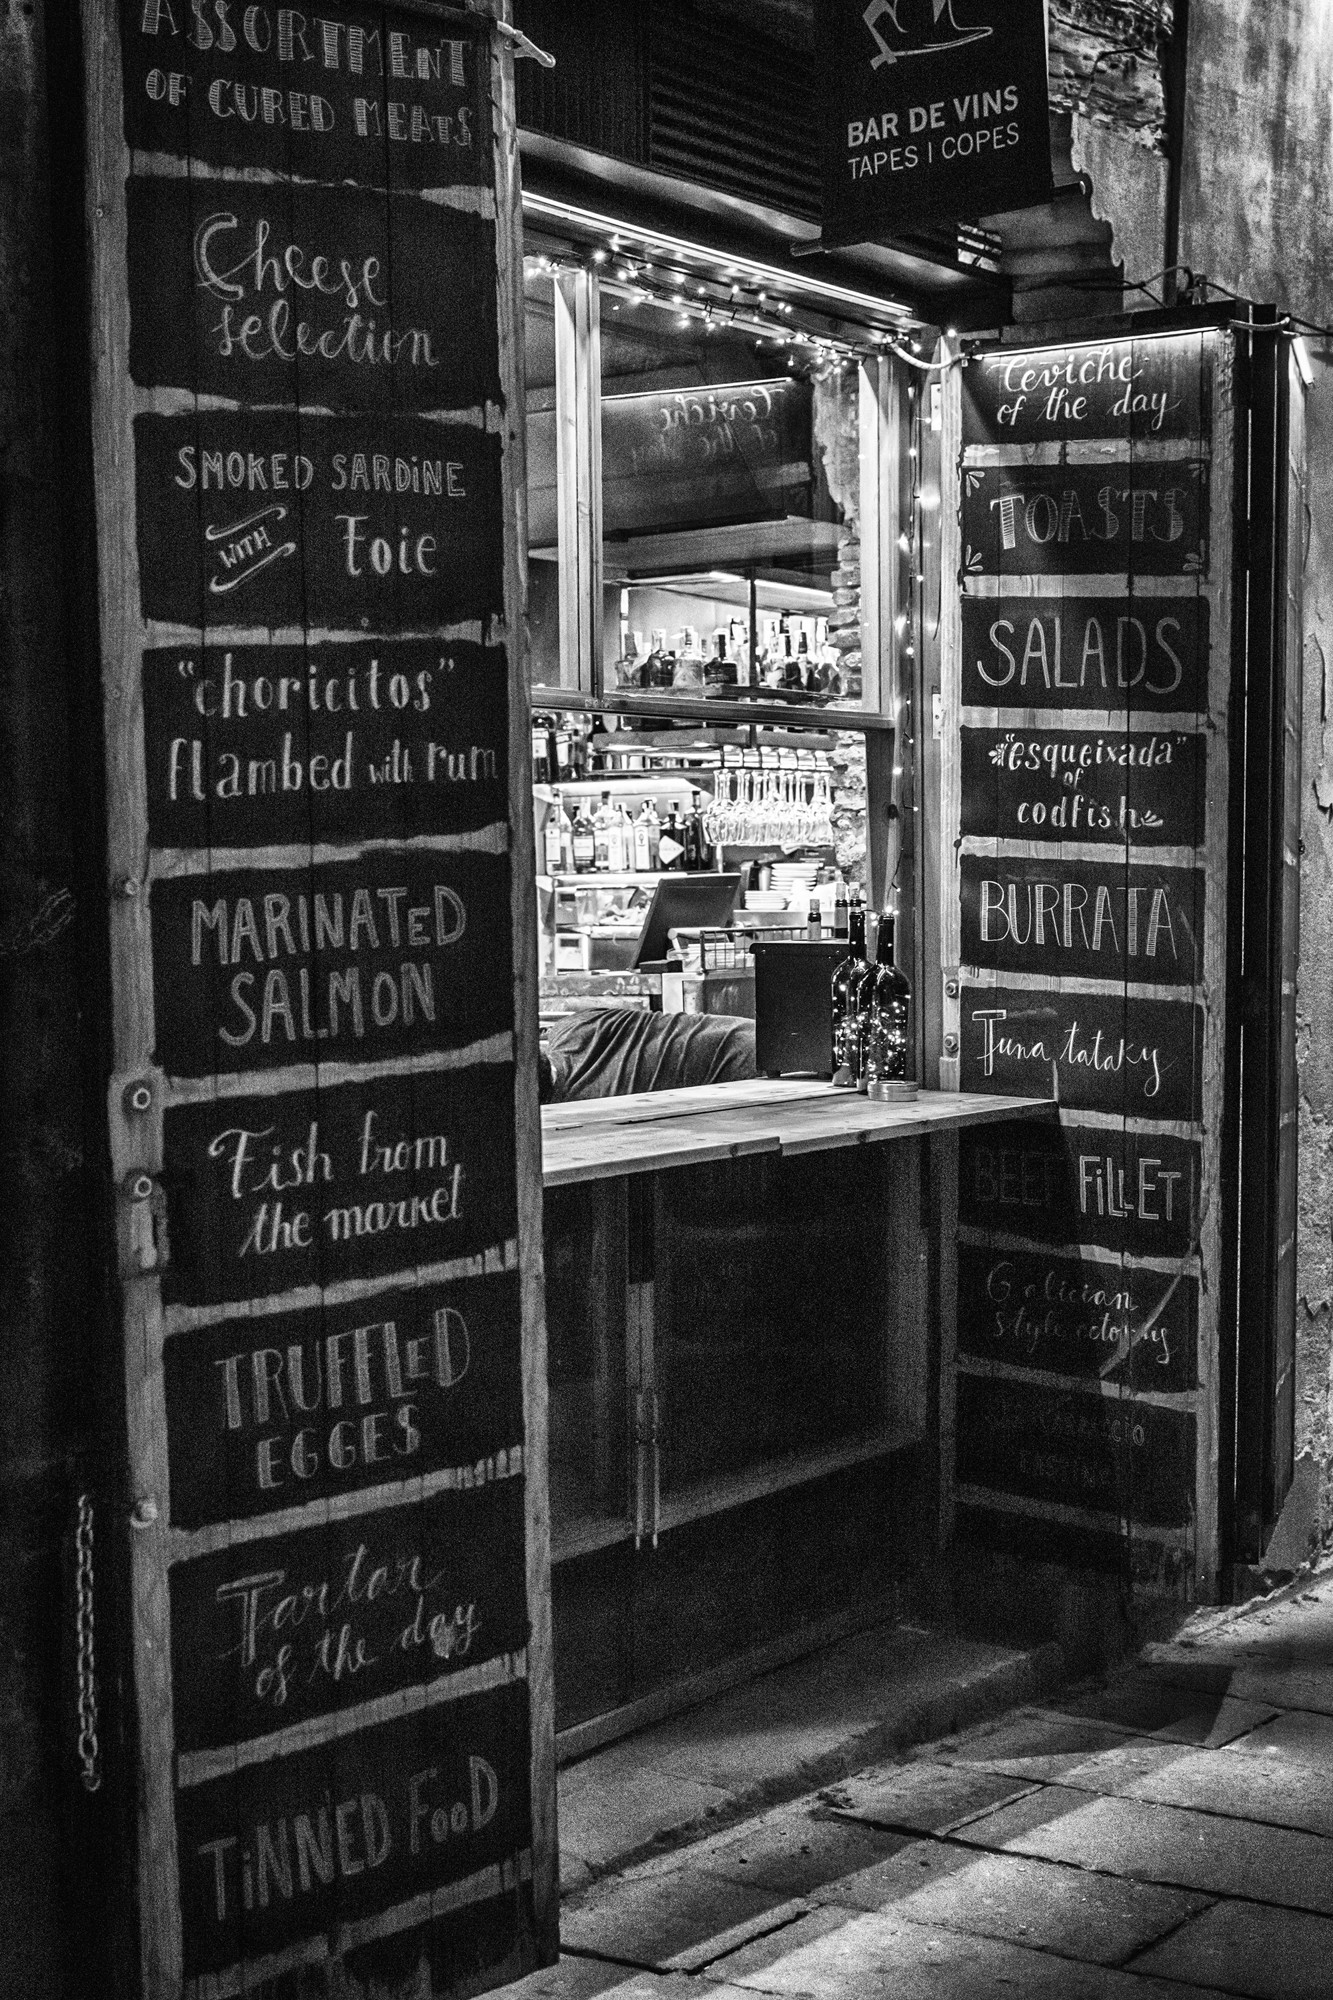 ASSORTMENT
OF CURED MEATS
Cheese
selection
SMOKED SARDINE
WITH Foie
"choricitos"
flambed with rum
MARINATED
SALMON
Fish from
the market
TRUFFLED
EGGES
Tartar
of the day
TINNED FOOD
BAR DE VINS
TAPES | COPES
Ceviche
of the day
Ceviche
of the day
TOASTS
SALADS
"esqueixada"
of
codfish
BURRATA
Tuna tataky
BEEF FILLET
Galician
style octopus